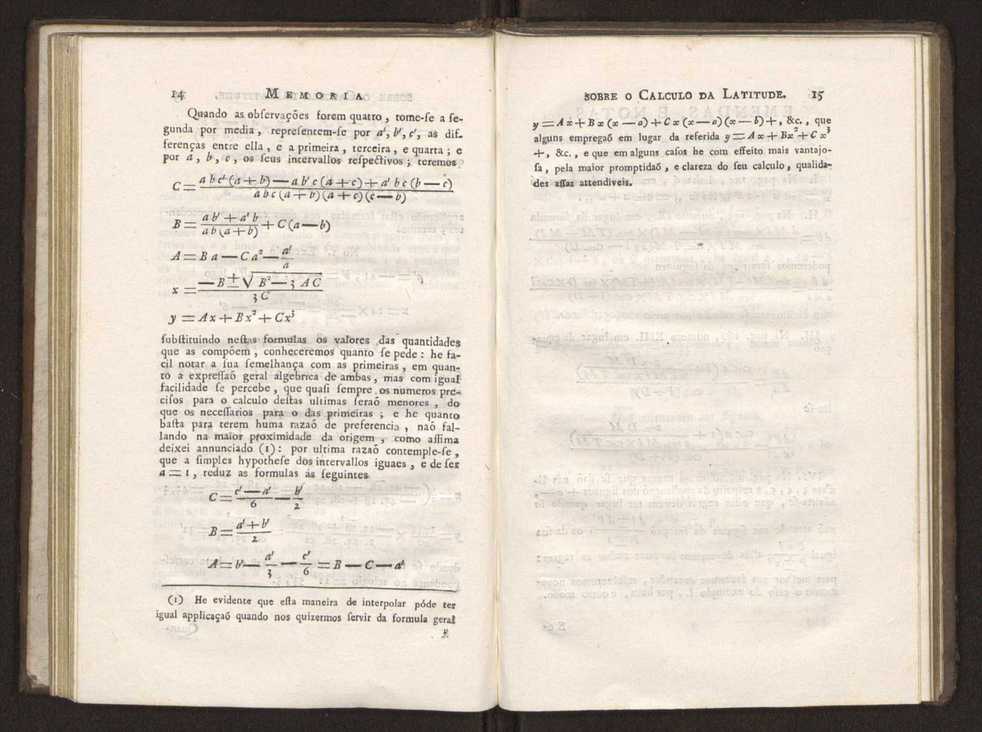 14 MEMORIA
Quando as obſervações forem quatro, tome-ſe a ſe-
gunda por media, repreſentem-ſe por a', b', c', as dif-
ferenças entre ella, e a primeira, terceira, e quarta; e
por a, b, c, os ſeus intervallos reſpectivos; teremos
C = a b c' (a + b) — a b' c (a + c) + a' b c (b — c) / a b c (a + b) (a + c) (c — b)
B = a b' + a' b / a b (a + b) + C (a — b)
A = B a — C a² — a' / a
x = — B ± √ B² — 3 A C / 3 C
y = A x + B x² + C x³
ſubſtituindo neſtas formulas os valores das quantidades
que as compõem, conheceremos quanto ſe pede: he fa-
cil notar a ſua ſemelhança com as primeiras, em quan-
to a expreſſaõ geral algebrica de ambas, mas com igual
facilidade ſe percebe, que quaſi ſempre os numeros pre-
ciſos para o calculo deſtas ultimas ſeraõ menores, do
que os neceſſarios para o das primeiras; e he quanto
baſta para terem huma razaõ de preferencia, naõ fal-
lando na maior proximidade da origem, como aſſima
deixei annunciado (1): por ultima razaõ contemple-ſe,
que a ſimples hypotheſe dos intervallos iguaes, e de ſer
a = 1, reduz as formulas ás ſeguintes
C = c' — a' / 6 — b' / 2
B = a' + b' / 2
A = b' — a' / 3 — c' / 6 = B — C — a'
(1) He evidente que eſta maneira de interpolar póde ter
igual applicaçaõ quando nos quizermos ſervir da formula geral
SOBRE O CALCULO DA LATITUDE. 15
y = A x + B x (x — a) + C x (x — a) (x — b) +, &c., que
alguns empregaõ em lugar da referida y = A x + B x² + C x³
+, &c., e que em alguns caſos he com effeito mais vantajo-
ſa, pela maior promptidaõ, e clareza do ſeu calculo, qualida-
des aſſas attendiveis.